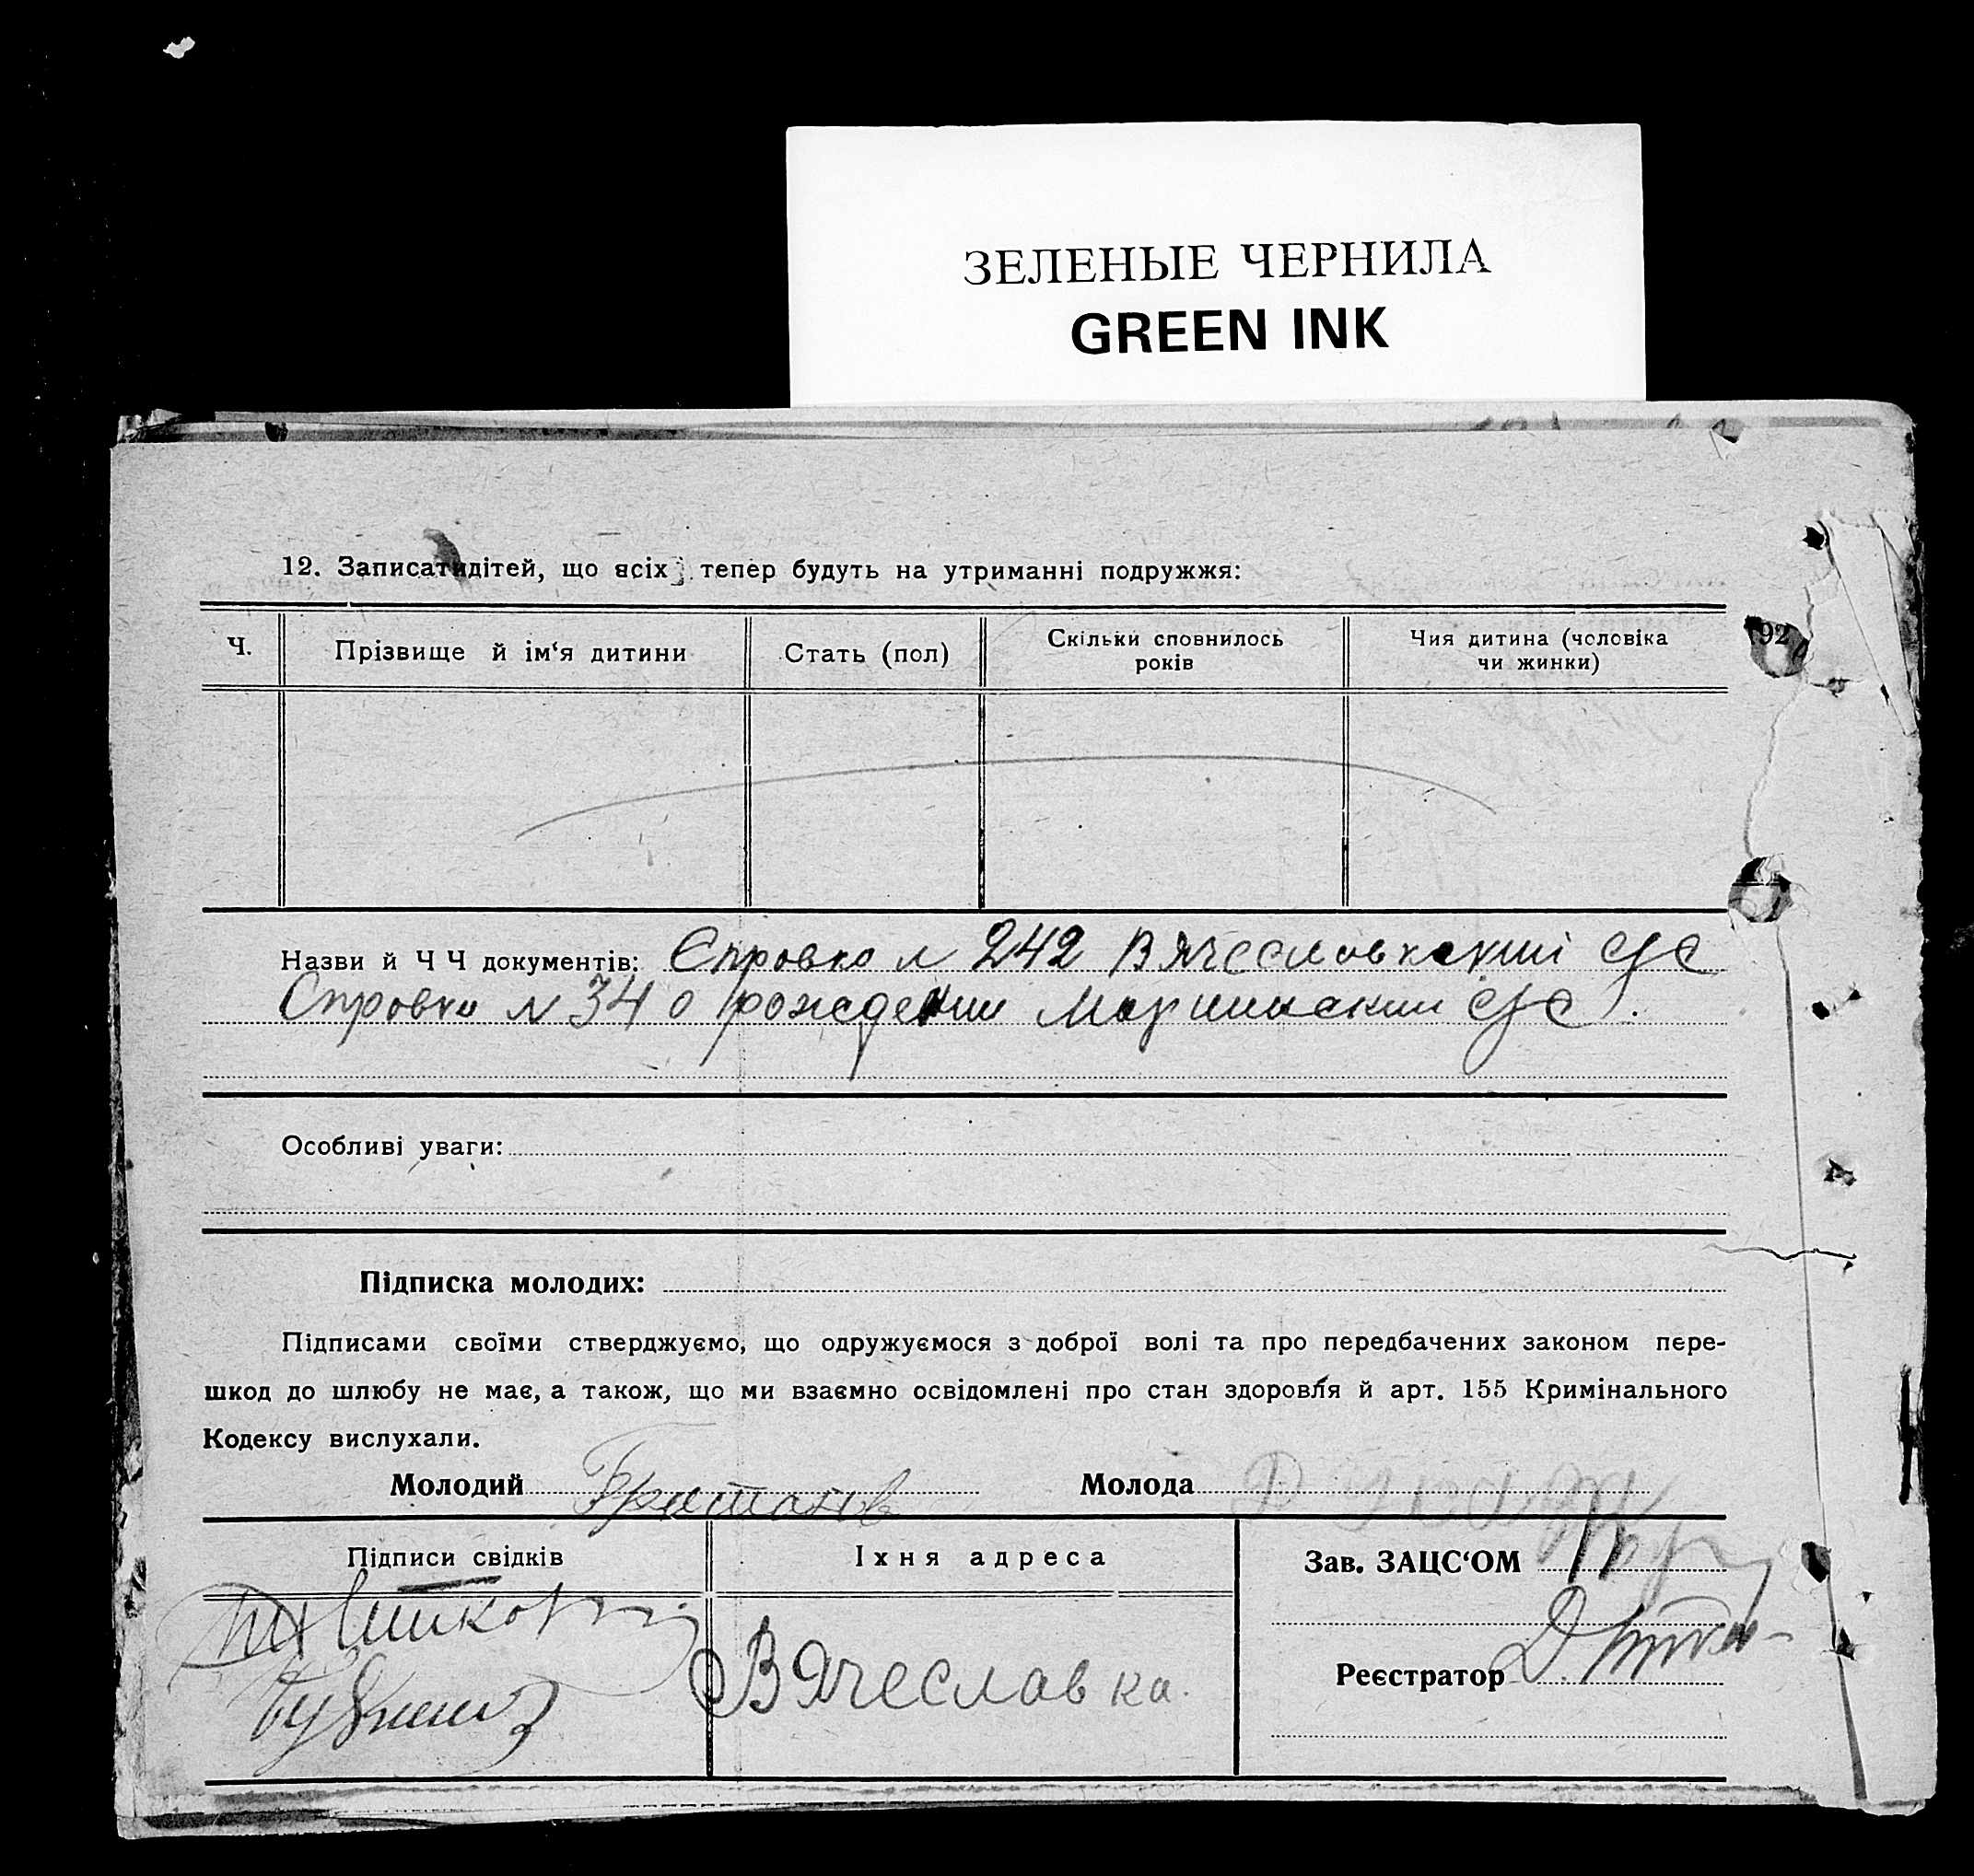 ЗЕЛЕНЫЕ ЧЕРНИЛА
GREEN INK
12. Записати дітей, що всіх тепер будуть на утриманні подружжя:
Ч.
Прізвище й ім‘я дитини
Стать (пол)
Скільки сповнилось
років
Чия дитина (чоловіка
чи жинки)
92
Назви й Ч Ч документів: Справка № 242 Вячеславкский с/с
Справка № 34 о рождении Мариинский с/с.
Особливі уваги:
Підписка молодих:
Підписами своїми стверджуємо, що одружуємося з доброї волі та про передбачених законом пере-
шкод до шлюбу не має, а також, що ми взаємно освідомлені про стан здоровля й арт. 155 Кримінального
Кодексу вислухали.
Молодий
Молода
Підписи свідків
Їхня адреса
Зав. ЗАЦС‘ОМ
Вячеславка.
Реєстратор